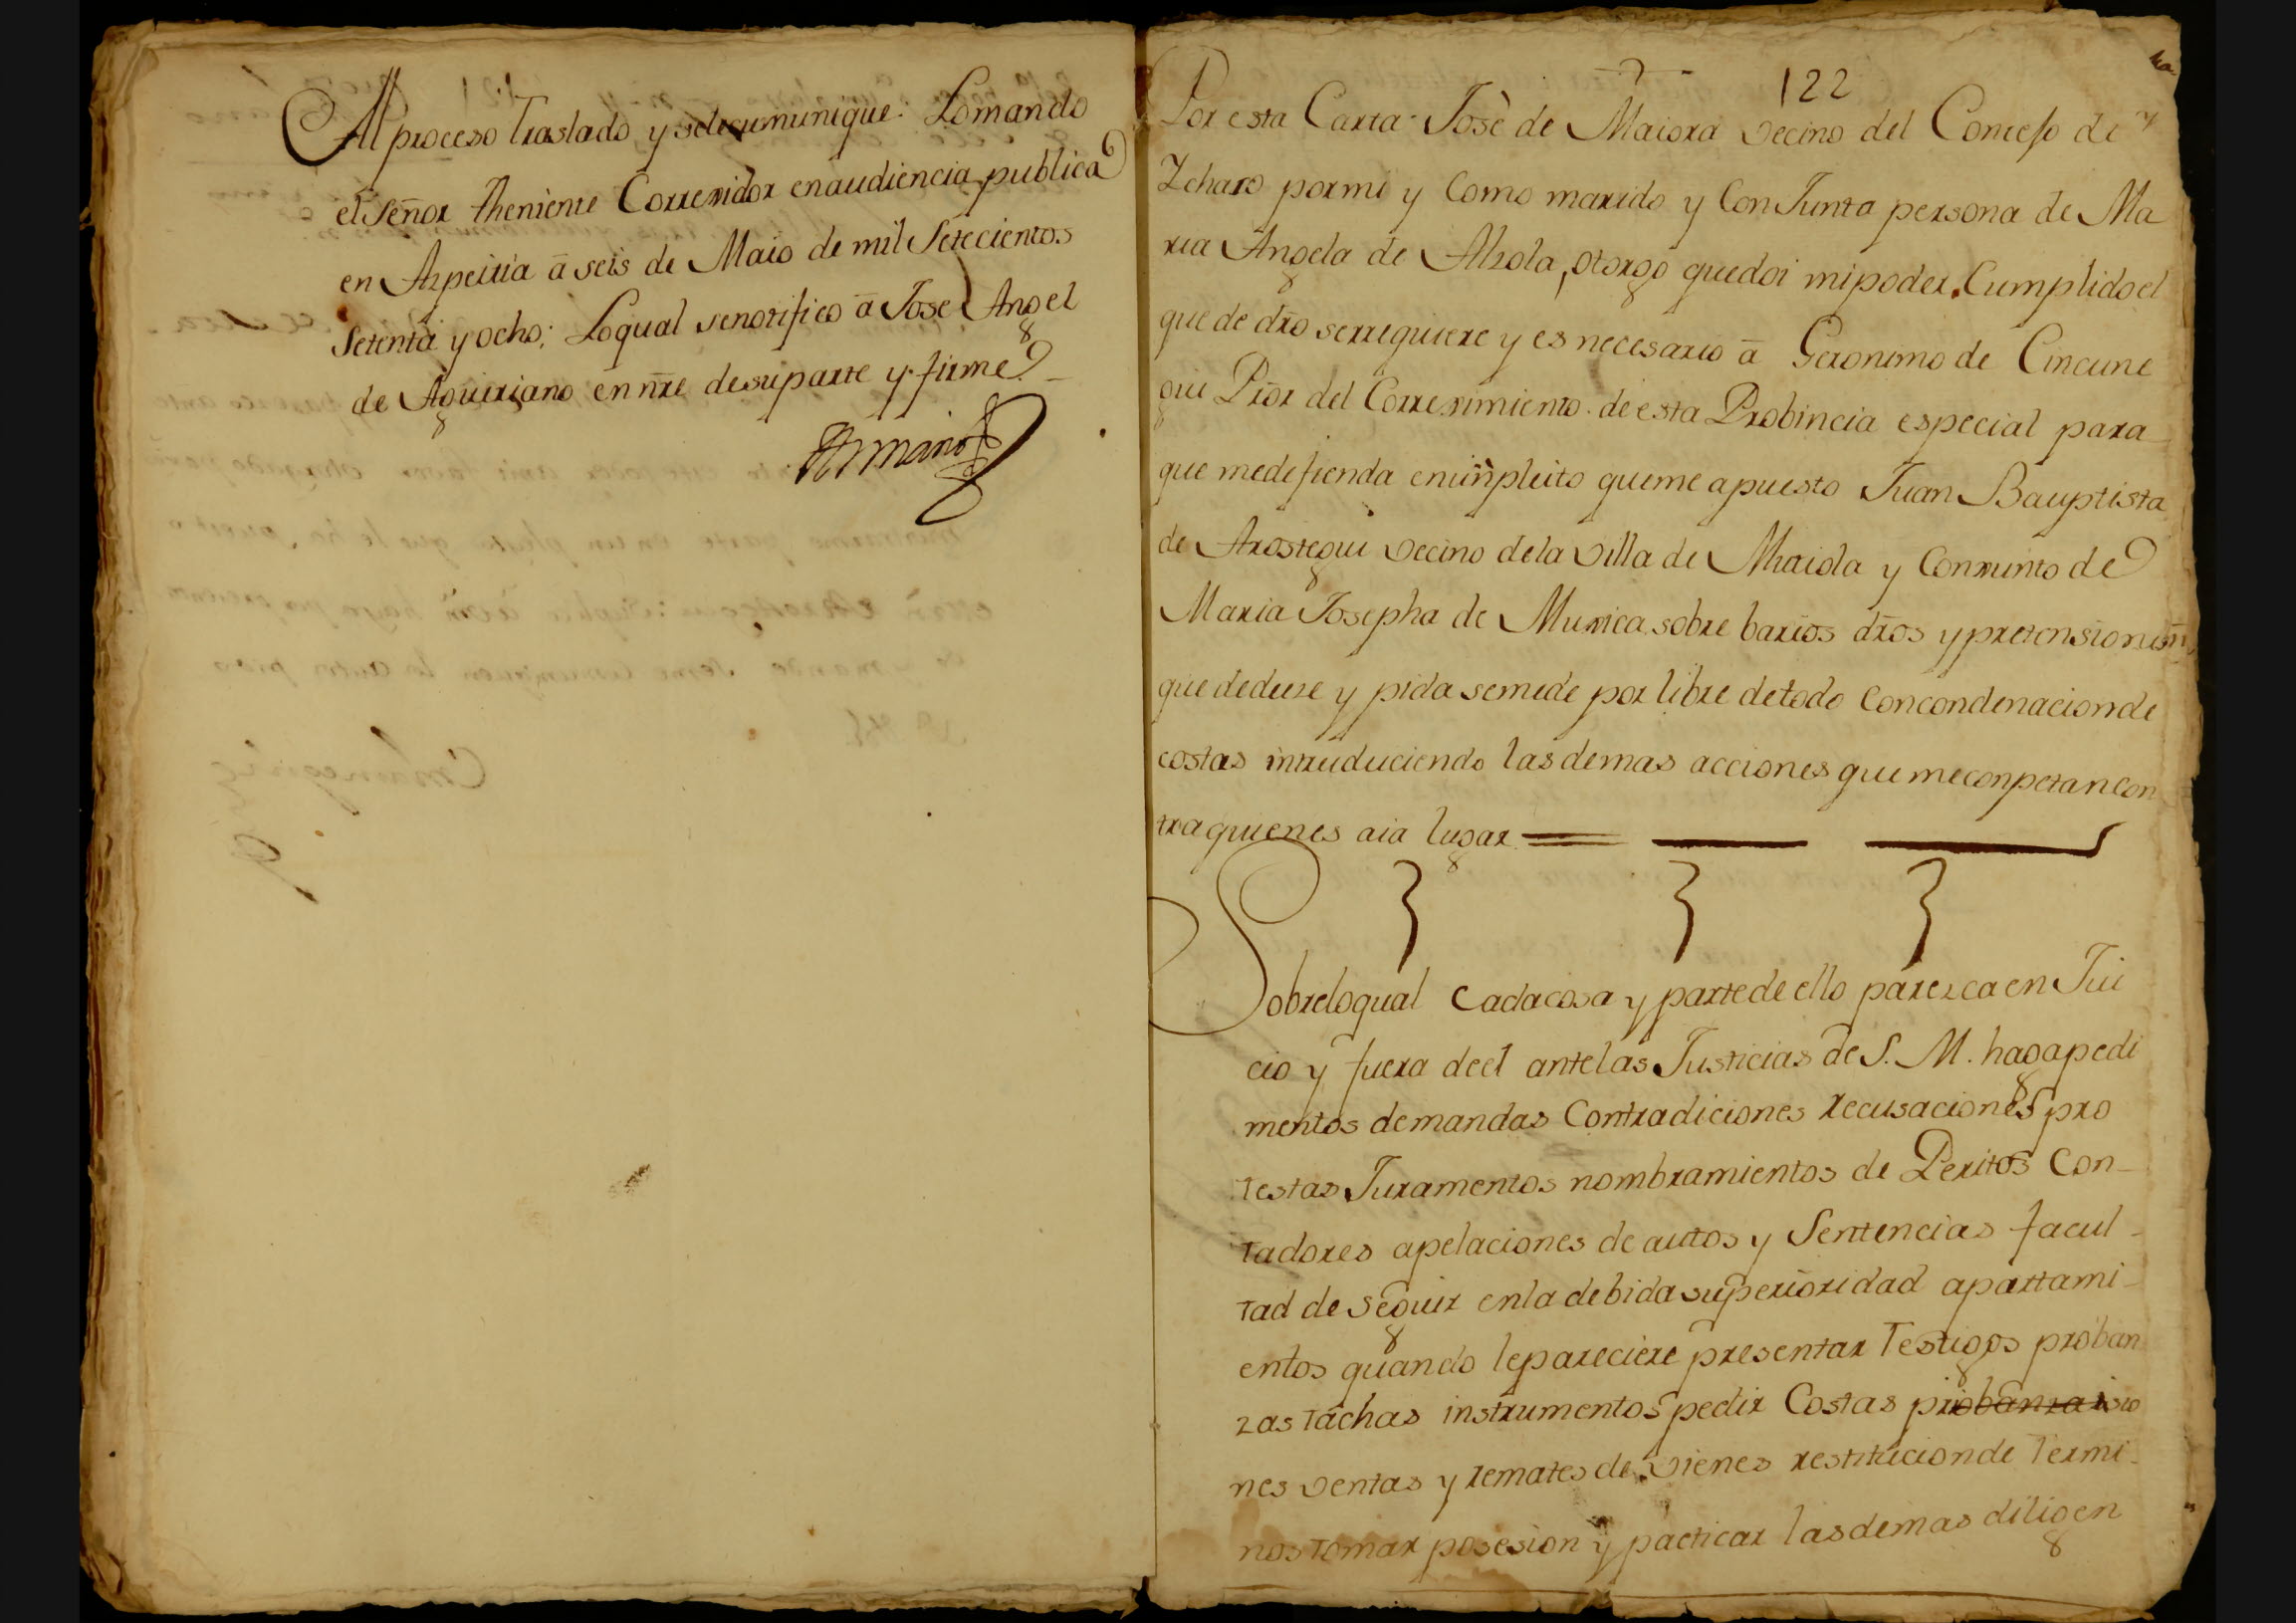 Al proceso traslado y sele cumunique: Lo mando
el Señor theniente Correxidor en audiencia publica
en Azpeitia â seis de Maio de mil Setecientos
Setenta y ocho; Lo qual se notifico â Jose Angel
de Aguiriano en nr̃e de su parte y firme
122
Por esta Carta Josè de Maiora vecino del Concejo de
Zeharo por mi y Como marido y Conjunta persona de Ma
ria Angela de Alzola, otorgo que doi mi poder Cumplido el
que de dr̃o se rrequiere y es necesario â Geronimo de Cincune
gui Pr̃or del Correximiento de esta Probincia especial para
que me defienda en un pleito que me a puesto Juan Bauptista
de Arostegui vecino de la villa de Azcoitia y Conxunto de
Maria Josepha de Muxica sobre barios dr̃os y pretensiones
que deduze y pida se me de por libre de todo Con condenacion de
costas intruduciendo las demas acciones que me conpetan con
tra quienes aia lugar
Sobre lo qual Cada cosa y parte de ello parezca en Jui
cio y fuera de el ante las Justicias de S. M. haga pedi
mentos demandas Contradiciones recusaciones pro
testas Juramentos nombramientos de Peritos Con-
tadores apelaciones de autos y Sentencias facul-
tad de seguir en la debida superioridad apartami-
entos quando le pareciere presentar Testigos proban
zas tachas instrumentos pedir Costas probanza
nes ventas y remates de vienes restitucion de Termi-
nos tomar posesion y pacticar las demas diligen